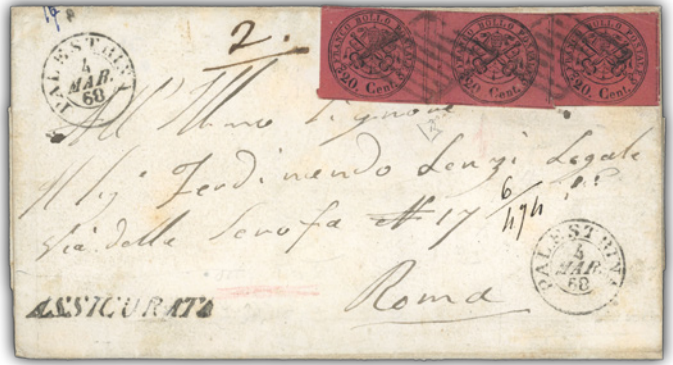 2.
PALESTRINA
4
MAR.
68
FRANCO BOLLO POSTALE
20 Cent.
FRANCO BOLLO POSTALE
20 Cent.
FRANCO BOLLO POSTALE
20 Cent.
All'Illmo Signore
Il Sig.e Ferdinando Lenzi Legale
Via della Scrofa N 17
6/474
Roma
ASSICURATA
PALESTRINA
4
MAR.
68